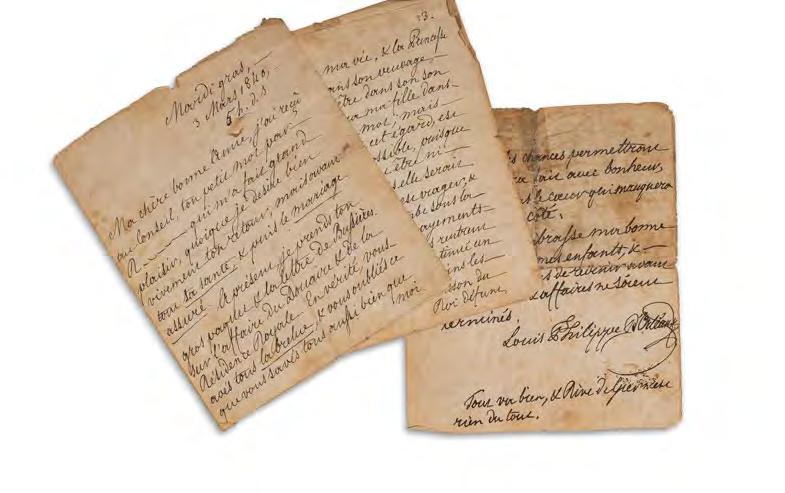 Mardi gras, —
3 Mars 1840,
6 h. d. S
Ma chère bonne Amie, j'ai reçu
au Conseil, ton petit mot par
R qui m'a fait grand
plaisir, quoique je désire bien
vivement ton retour; mais avant
tout ta santé, & puis le mariage
assuré. A présent je prends ton
gros paquet & la lettre de
sur l'affaire du Douaire & de la
Résidence Royale. En vérité, vous
avés tous la berlue, & vous oubliés ce
que vous savés tous aussi bien que
moi
3.
ma vie, & la Princesse
ans son veuvage
être dans son
ma fille dans
moi; mais
cet égard, est
ssible, puisque
être ni
selle serait
es viager, &
sous la
ayements
tinué un
ans les
son du
Roi défunt,
chances permettront
fait avec bonheur,
le cœur qui manquera
côté.
brasse ma bonne
mes enfants, &
de revenir avant
affaires ne soient
terminés.
Louis Philippe d'Orléans
Tout va bien, & Rine de
rien du tout.